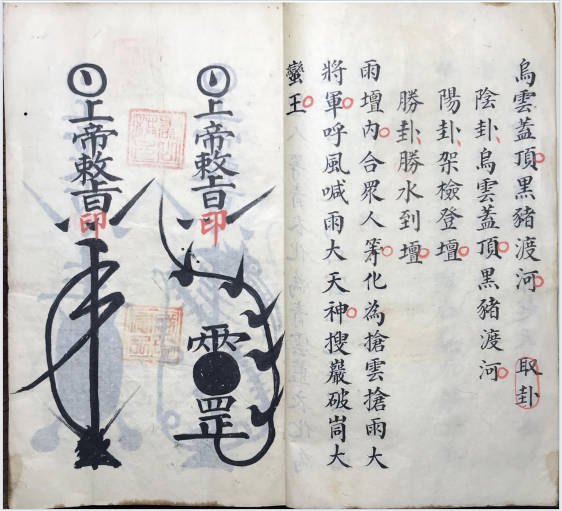 烏雲蓋頂黑豬渡河 取卦
陰卦烏雲蓋頂黑豬渡河
陽卦架檢登壇
勝卦勝水到壇
雨壇內合眾人化為搶雲搶雨大
將軍呼風喊雨大天神搜巖破峝大
蠻王
上帝敕旨印
罡
上帝敕旨印